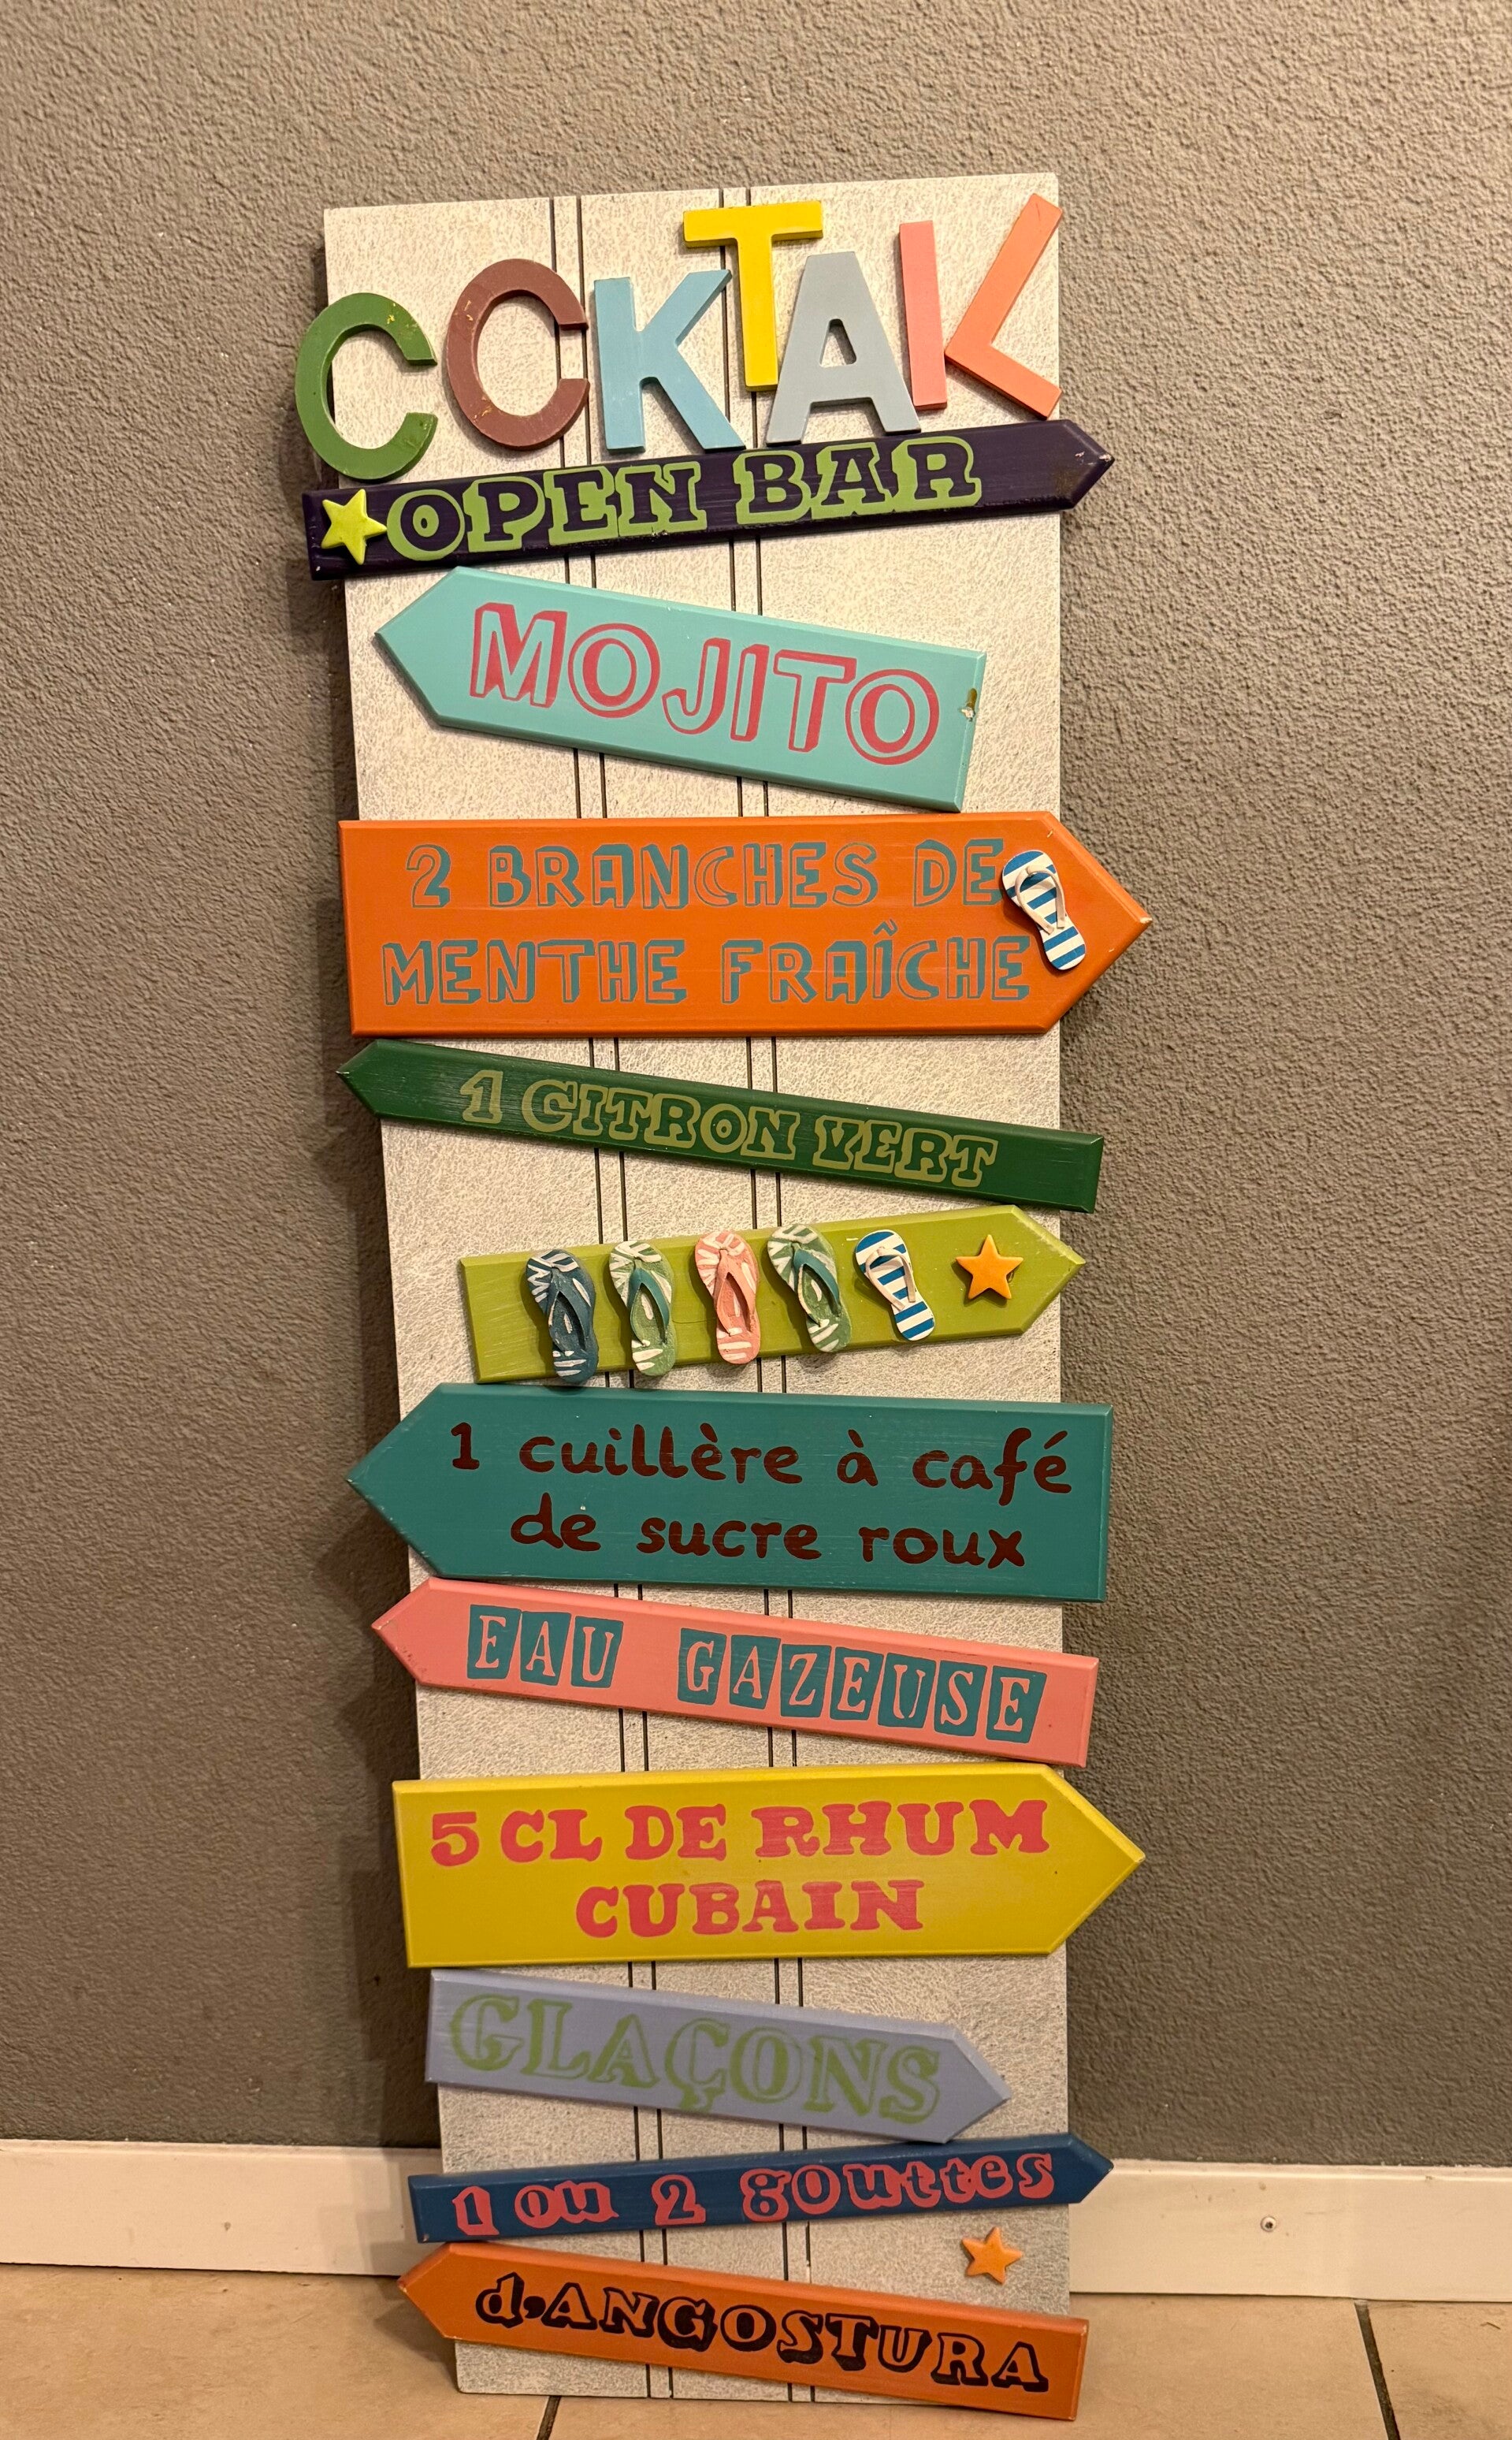 CCKTAIL
OPEN BAR
MOJITO
2 BRANCHES DE
MENTHE FRAÎCHE
1 CITRON VERT
1 cuillère à café
de sucre roux
EAU GAZEUSE
5 CL DE RHUM
CUBAIN
GLAÇONS
1 ou 2 gouttes
d'ANGOSTURA